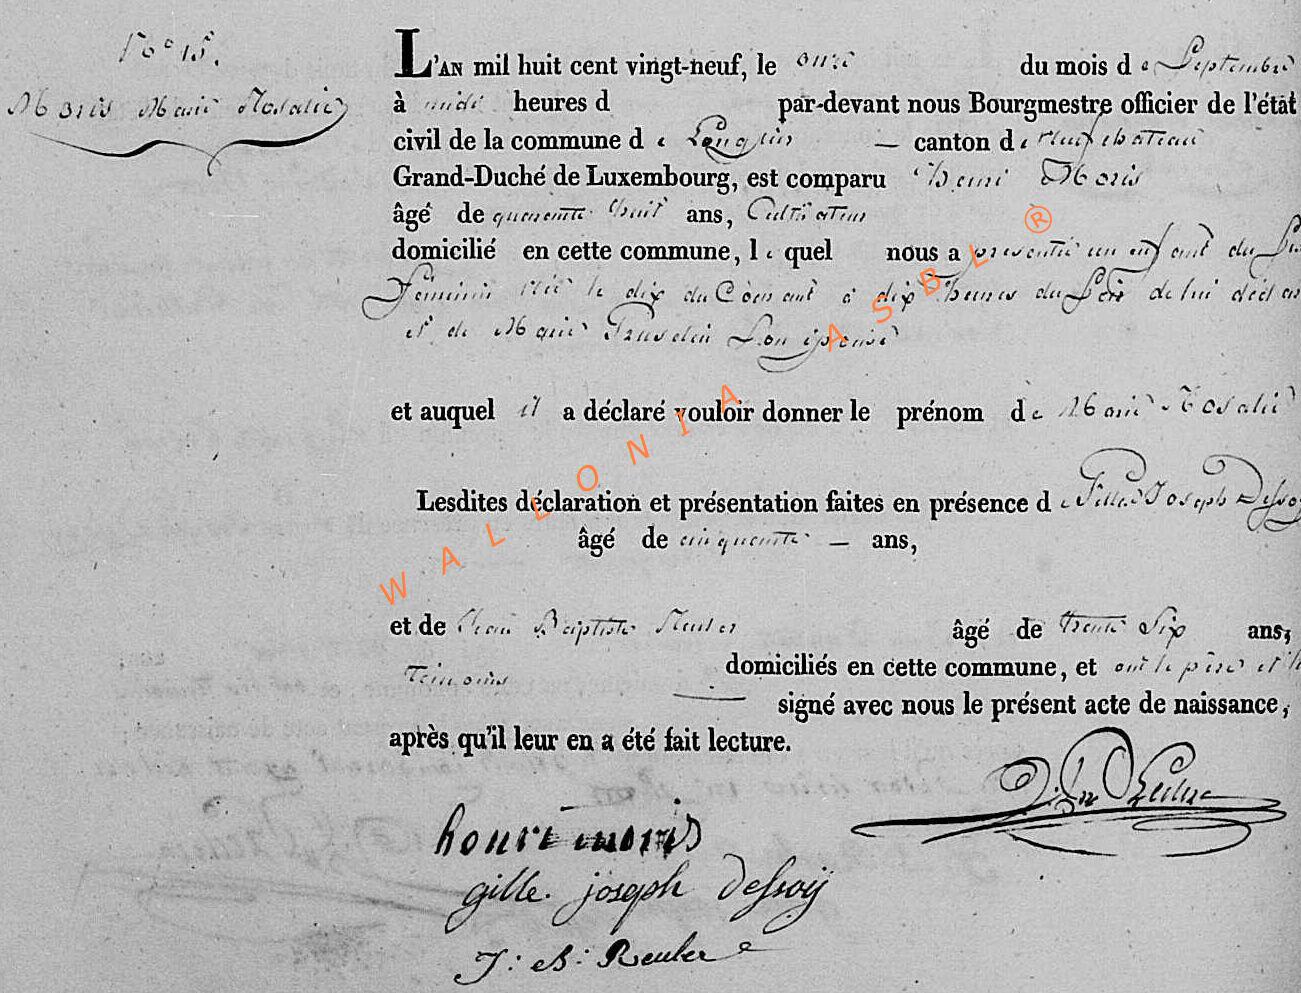 N° 15.
Moris Marie Rosalie
L'AN mil huit cent vingt-neuf, le onze du mois de Septembre
à midi heures d par-devant nous Bourgmestre officier de l'état
civil de la commune de Longlier — canton de neufchateau
Grand-Duché de Luxembourg, est comparu henri Moris
âgé de quarante huit ans, Cultivateur
domicilié en cette commune, lequel nous a presenté un enfant du
Feminin née le dix du Courant à dix heures du Soir de lui
et de Marie Son épouse
et auquel il a déclaré vouloir donner le prénom de Marie Rosalie
Lesdites déclaration et présentation faites en présence de Gille Joseph Dessoy
âgé de cinquante — ans,
et de Jean Baptiste Reuler âgé de trente Six ans,
Temoins domiciliés en cette commune, et ont le père et
signé avec nous le présent acte de naissance,
après qu'il leur en a été fait lecture.
henri moris
gille joseph dessoy
J: B: Reuler
WALLONIA ASBL ®